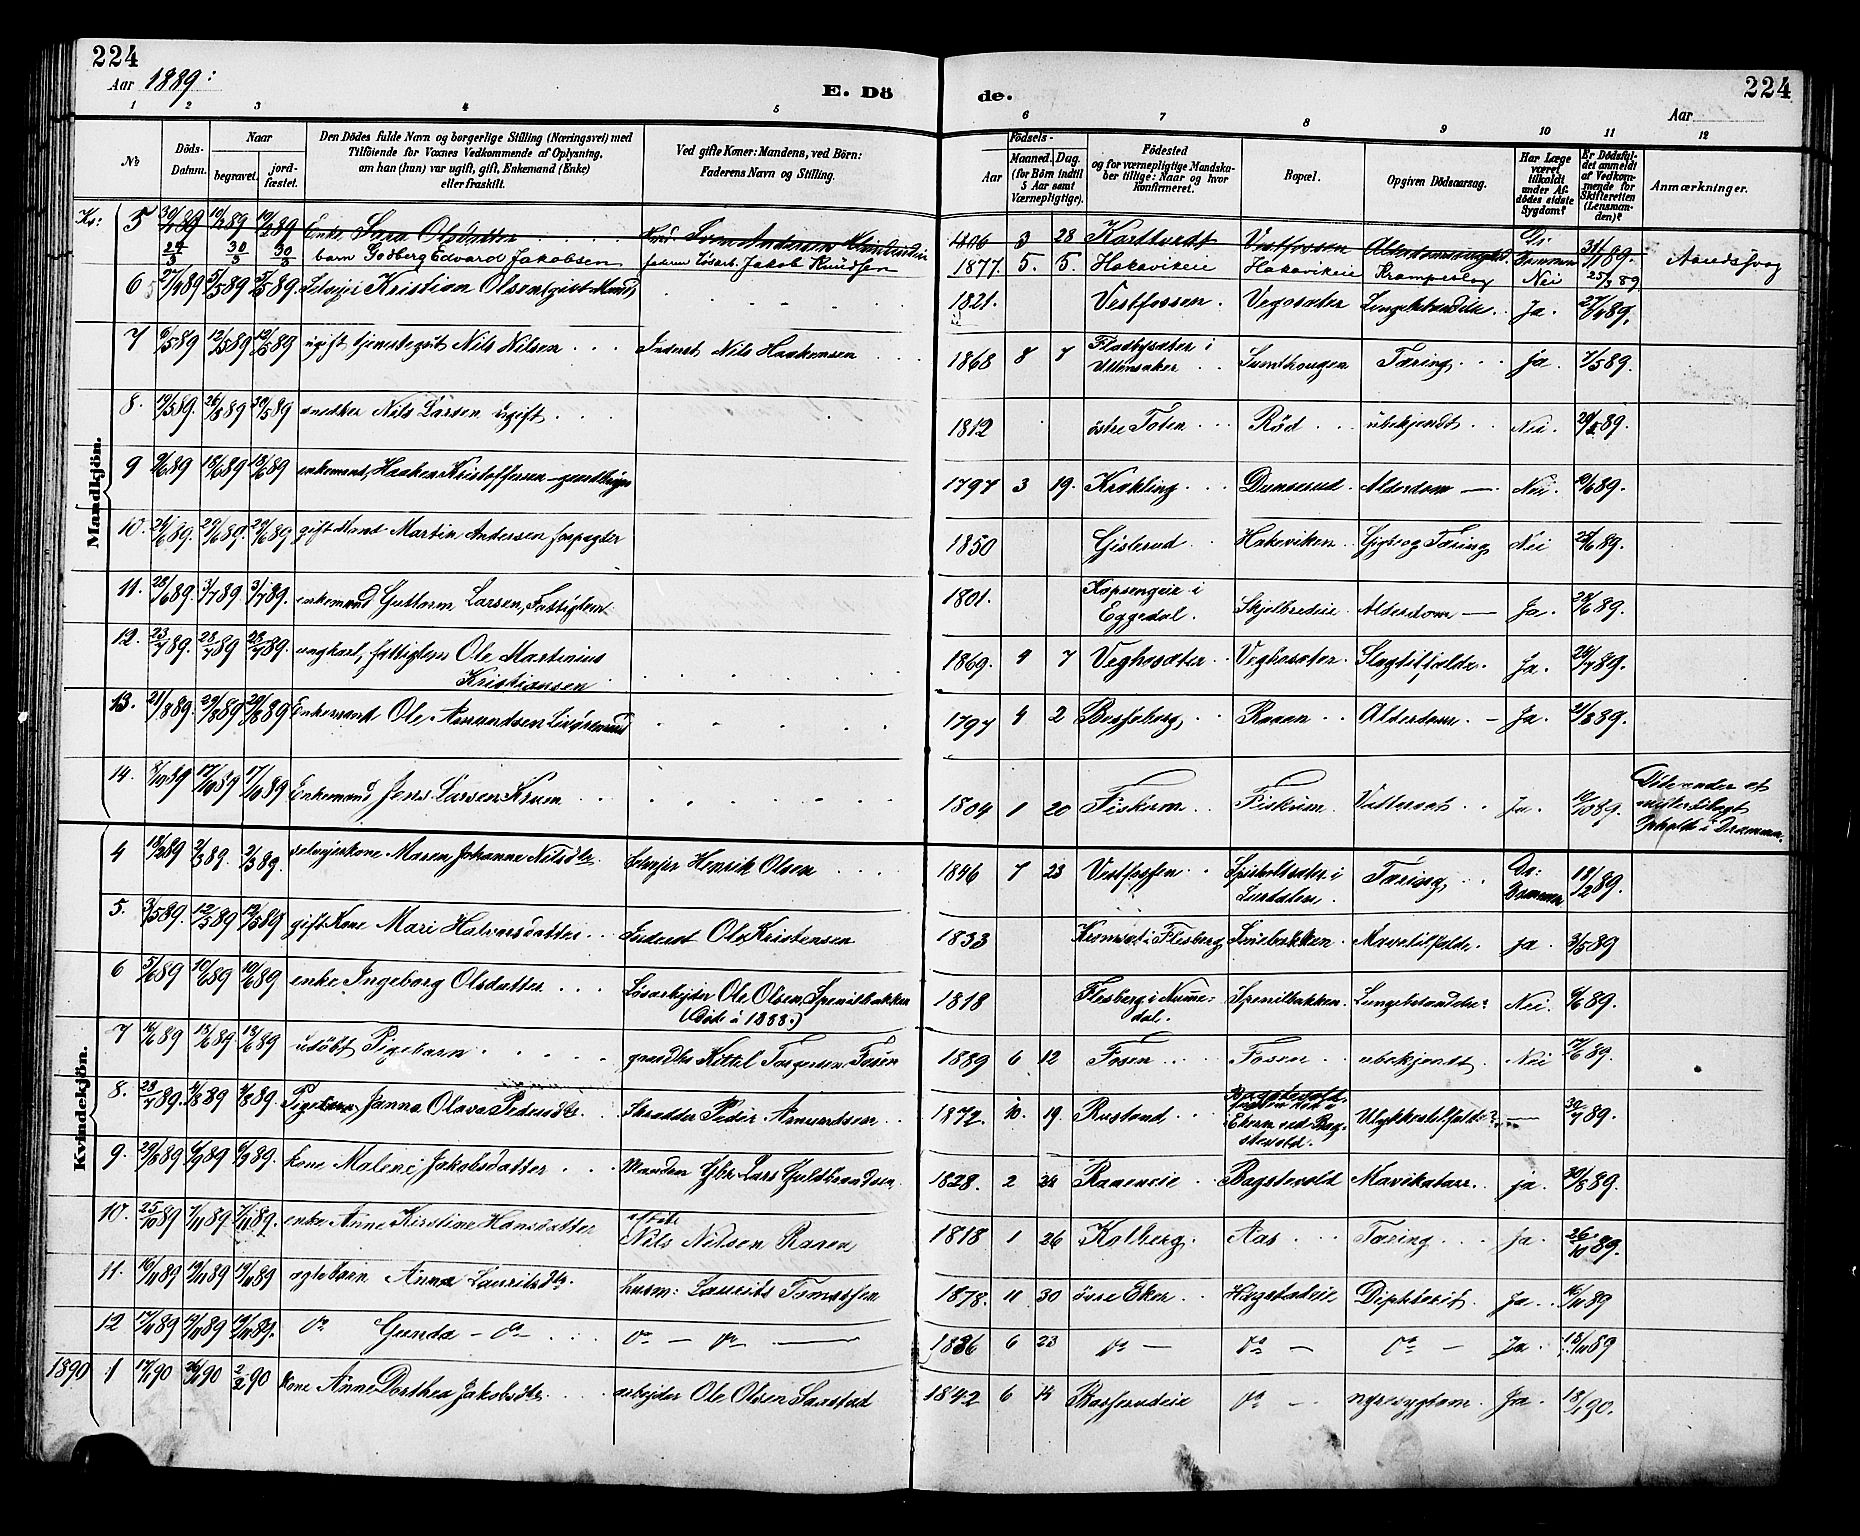 224
Aar 1889:
E. Dö
de.
224
Aar
1 2 3 4 5 6 7 8 9 10 11 12
No
Döds-Datum.
Naar
begravet.
jord-fæstet.
Den Dödes fulde Navn og borgerlige Stilling (Næringsvei) med
Tilföiende for Voxnes Vedkommende af Oplysning,
om han (hun) var ugift, gift, Enkemand (Enke)
eller fraskilt.
Ved gifte Koner: Mandens, ved Börn:
Faderens Navn og Stilling.
Födsels-
Aar
Maaned. Dag.
(for Börn indtil
5 Aar samt
Værnepligtige).
Födested
og for værnepligtige Mandska-
ber tillige: Naar og hvor
konfirmeret.
Bopæl.
Opgiven Dödsaarsag.
Har Læge
været
tilkaldt
under Af-
dödes sidste
Sygdom?
Er Dödsfal-
det anmeldt
af Vedkom-
mende for
Skifteretten
(Lensman-
den)?
Anmærkninger.
Mandkjön.
Kvindekjön.
Kv: 5 30/1 89 10/2 89 10/2 89 Enke Sara Olsdatter 1806 3 28 Vestfossen 31/1 89.
30/3 30/3 barn Godberg Edvard Jakobsen Jakob Knudsen 1877. 5. 5. Hakavikeie Hakavikeie Nei 25/3 89
6 27/4 89 5/5 89 5/5 89. Selveier Kristian Olsen gift Mand 1821. Vestfossen Vegosæter Ja. 27/4 89.
7 6/5 89 12/5 89 12/5 89 ugift Nils Nilsen Inderst Nils Haakensen 1868 8 7 Fladbysæter i Ullensaker Tæring ja. 7/5 89.
8. 19/5 89. 26/5 89 30/5 89 snedker Nils Larsen ugift. 1812 östre Toten Röd ubekjendt Nei. 20/5 89.
9 9/6 89 18/6 89 18/6 89 enkemand, Haaken Kristoffersen 1797 3 19. Krekling Dunserud Alderdom Nei 10/6 89.
10. 26/6 89. 29/6 89. 29/6 89 gift Mand Martin Andersen forpagter 1850 Gislerud Hakeviken Gigt og Tæring Nei 28/6 89.
11. 28/6 89. 3/7 89. 3/7 89. enkemand Guttorm Larsen, Fattiglem 1801. Kopsengeie i Eggedal. Skjelbredeie Alderdom Ja. 28/6 89.
12. 23/7 89. 28/7 89 28/7 89. ungkarl, fattiglem Ole Martinius Kristiansen 1869. 9 7 Veghosæter Veghosæter Slagtilfælde. Ja. 24/7 89.
13. 21/8 89. 29/8 89 29/8 89 Enkemand Ole Amundsen 1797 4 2 Besseberg Raaen Alderdom. Ja. 21/8 89.
14. 8/10 89 17/10 89 17/10 89 Enkemand Jens Larsen Krum 1804 1 20 Fiskum Fiskum Ja. 10/10 89.
4 18/2 89 2/3 89. 2/3 89. selveierkone Maren Johanne Nilsdtr. Selveier Henrik Olsen 1846 7 23 Vestfossen Tæring Dr: Drammen 18/2 89.
5. 3/5 89. 12/5 89 12/5 89 gift Kone Mari Halvorsdatter Inderst Ole Kristensen 1833 Flesberg ja. 3/5 89
6 5/6 89 10/6 89 10/6 89 enke Ingeborg Olsdatter Lösarbejder Ole Olsen, Spenilbakken (Död i 1888.) 1818 Flesberg i Numedal. Spenilbakken. Lungebetændelse? Nei. 6/6 89.
7 16/6 89 18/6 89 18/6 89 udöbt Pigebarn gaardbr. Kittil Torgersen Fosen 1889 6 12 Fosen Fosen ubekjendt Nei 17/6 89.
8. 28/7 89. 4/8 89 4/8 89. Pigebarn Janna Olava Pedersdtr. Skrædder Peder Amundsen 1872. 10. 19. Rustand Ulykkestilfælde? 30/7 89.
9. 29/8 89 6/9 89 6/9 89. Kone Maleni Jakobsdatter Manden Gbr. Lars Guldbrandsen 1828. 2 24 Rameneie Bagstevold Mavekatarr ja. 30/8 89.
10. 25/10 89 7/11 89 7/11 89. enke Anne Kirstine Hansdatter afdöde Nils Nilsen Raaen 1818 1 26 Kolberg. Aas Tæring Ja. 26/10 89.
11. 16/11 89 19/11 89 19/11 89 ægtebarn Anna Lauritsdtr. husm: Laurits Tomassen 1878. 11 30 övre Eker Hagstadeie Difterit. Ja. 16/11 89
12 17/11 89 19/11 89 19/11 89. do Gunda - do - do - do - 1886 6 23 do - do - do - Ja. 18/11 89
1890 1 17/1 90 26/1 90 2/2 90 Kone Anne Dorthea Jakobsdtr. arbejder Ole Olsen Sanstad 1842 6 14 do - nyresygdom Ja. 18/1 90.